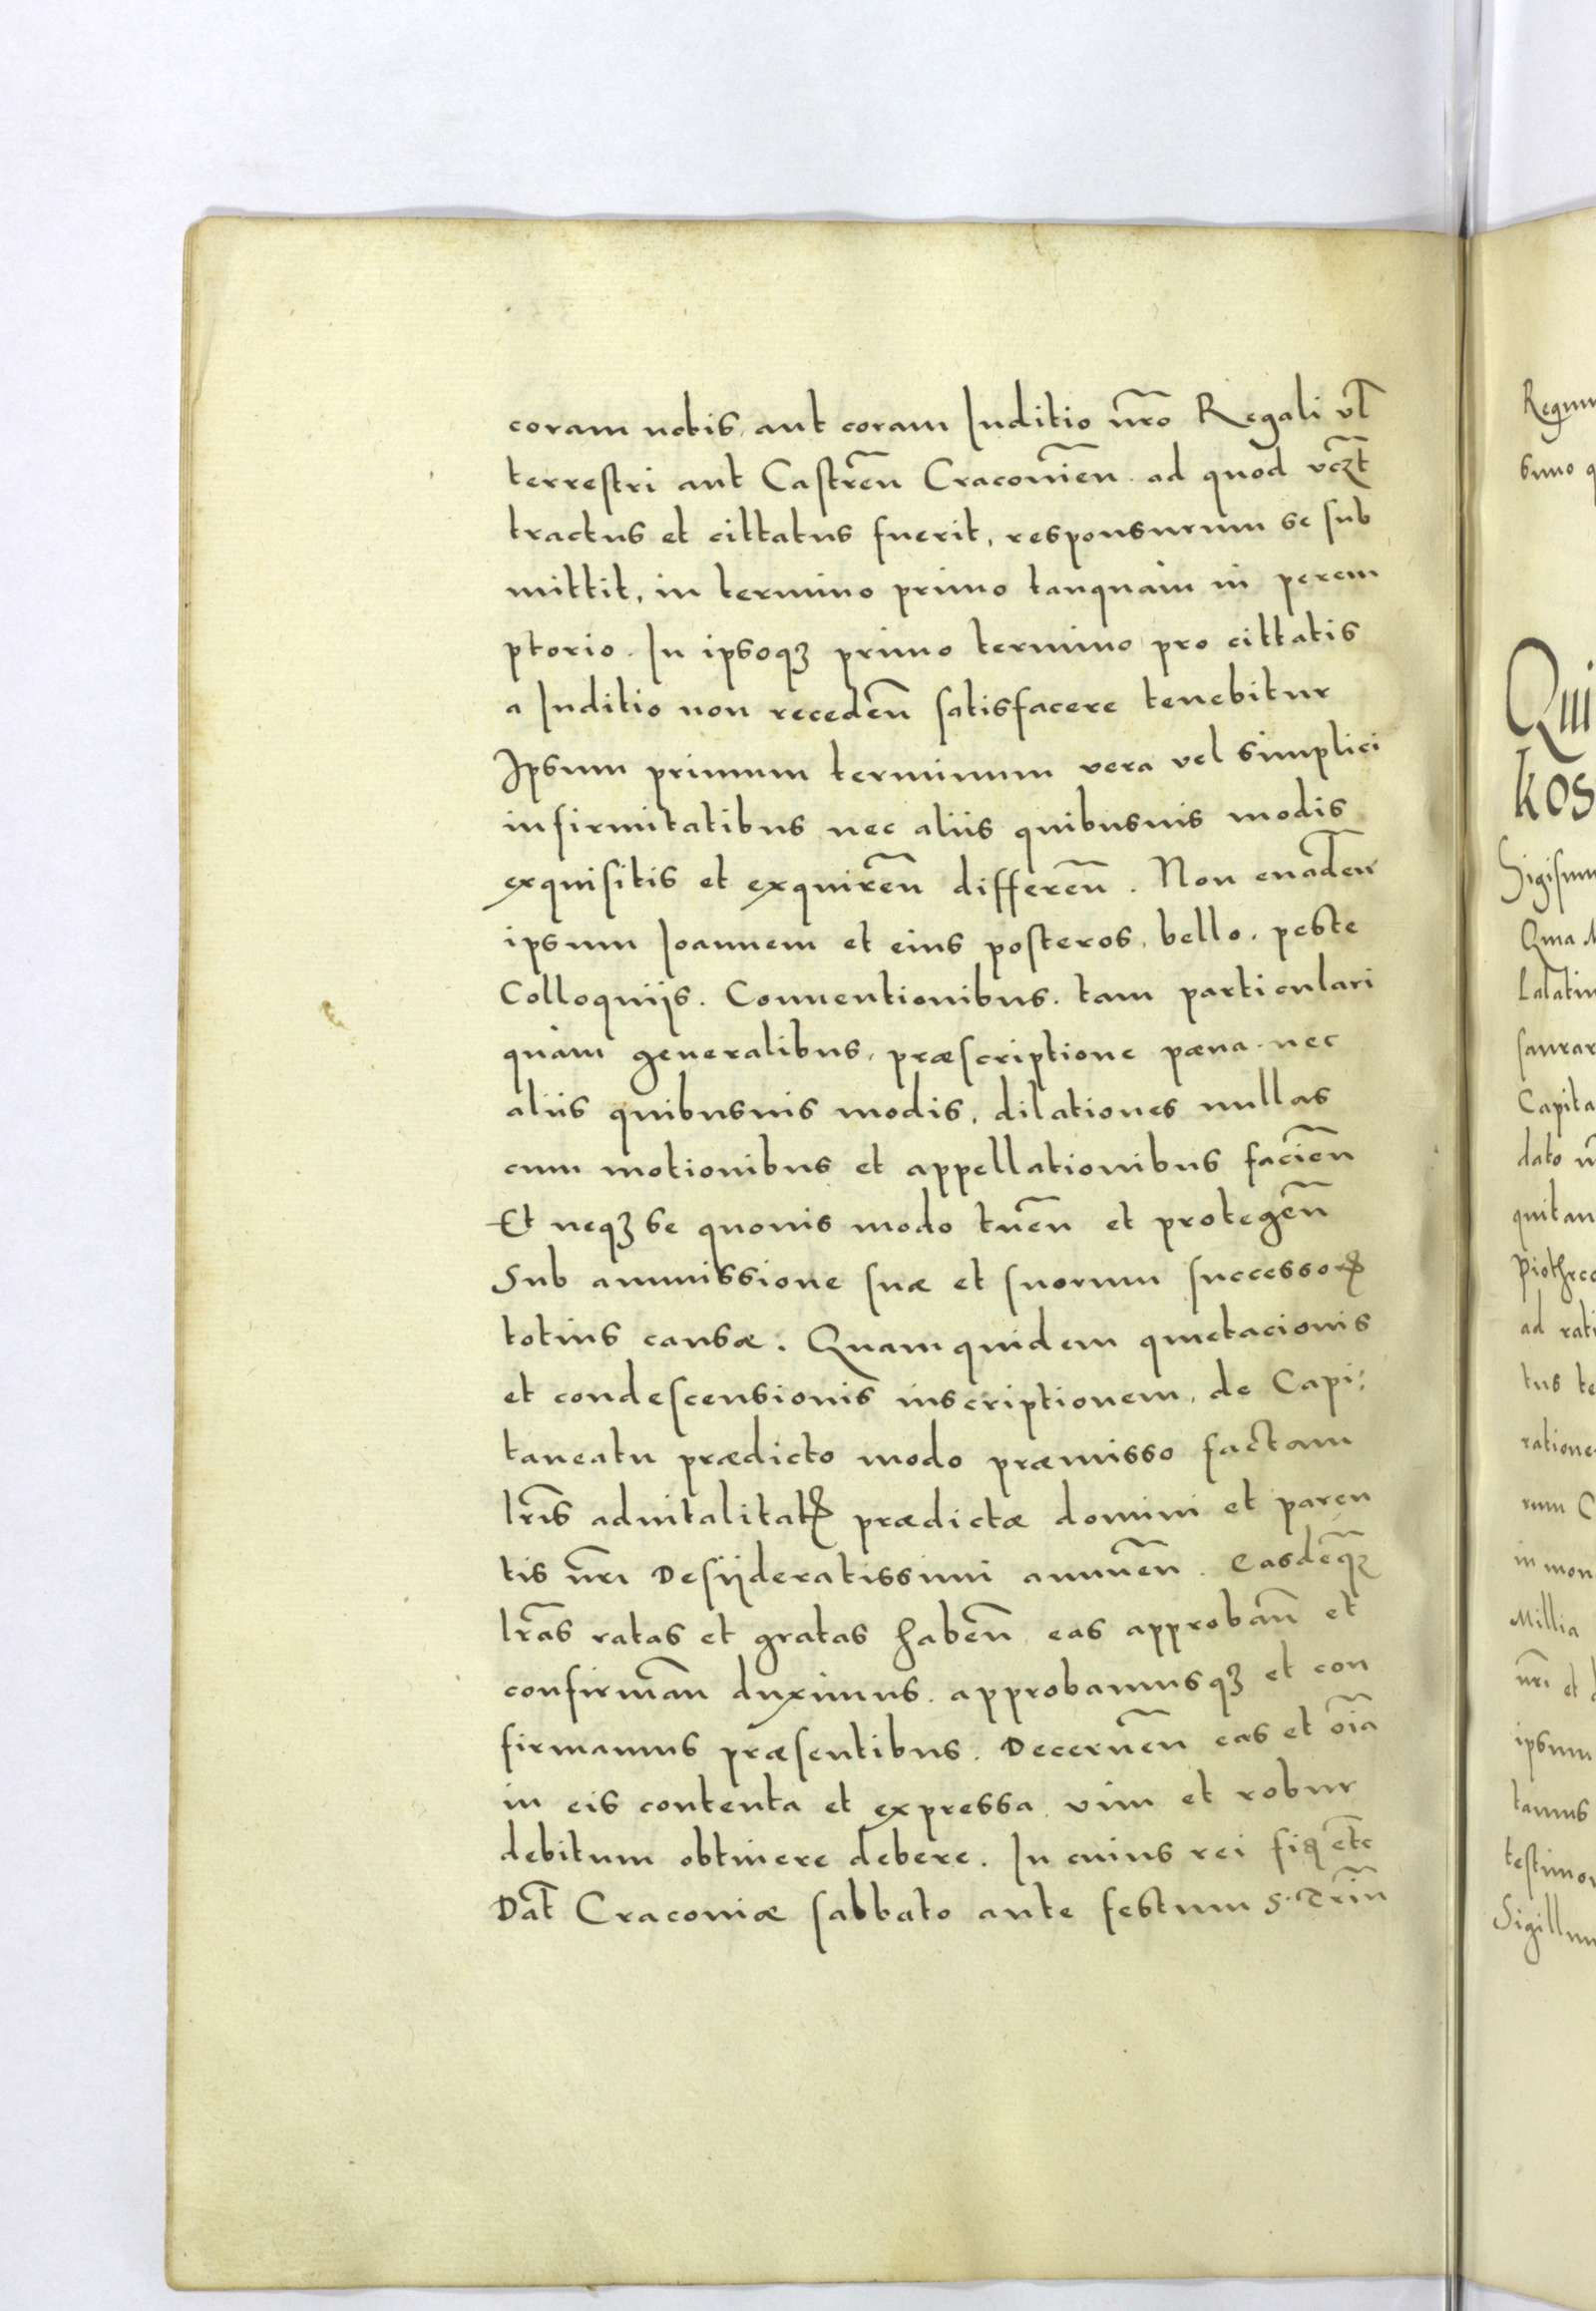 coram nobis, aut coram Iuditio nr̃o Regali vl̃
terrestri aut Castreñ Cracovieñ. ad quod vcꝫt̃
tractus et cittatus fuerit, responsurum se sub
mittit, in termino primo tanquam in perem
ptorio. In ipsoqꝫ primo termino pro cittatis
a Iuditio non recedeñ satisfacere tenebitur
Ipsum primum terminum vera vel simplici
infirmitatibus nec aliis quibusuis modis
exquisitis et exquireñ differeñ. Non euadeñ
ipsum Ioannem et eius posteros, bello, peste
Colloquijs. Conuentionibus. tam particulari
quam generalibus, præscriptione pæna. nec
aliis quibusuis modis, dilationes nullas
cum motionibus et appellationibus facieñ
Et neqꝫ se quouis modo tueñ et protegeñ
Sub ammissione suæ et suorum successoꝝ
totius causæ. Quam quidem quietacionis
et condescensionis inscriptionem, de Capi:
taneatu prædicto modo præmisso factam
lr̃is aduitalitatꝭ prædictæ domini et paren
tis nr̃i Desijderatissimi annueñ. Easdem̃qꝫ
lr̃as ratas et gratas habeñ, eas approbañ et
confirmañ duximus. approbamusqꝫ et con
firmamus præsentibus. Decerneñ eas et oĩa
in eis contenta et expressa, vim et robur
debitum obtinere debere. In cuius rei fiꝗ etc̃
Dat̃ Cracoviæ sabbato ante festum S. Triñ
Regnu
simo q
Qui
kos
Sigism
Qma
Lalatin
saurar
Capita
dato
quitan
Piothrco
ad rati
tus te
ratione
rum C
in mon
Millia
nr̃i et
ipsum
tamus
testimo
Sigillum